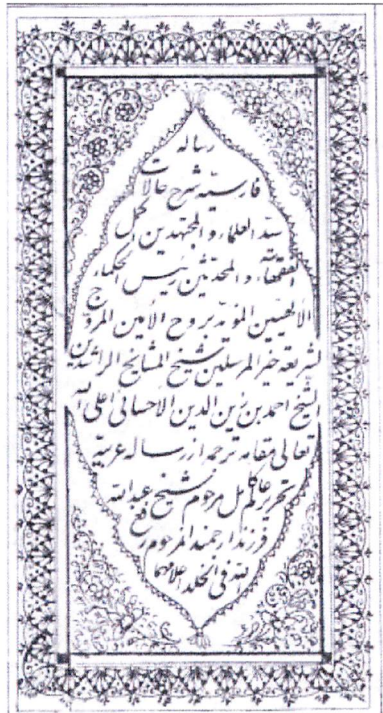 رساله
فارسیّه شرح حالات
سیّد العلماء و المجتهدین اکمل
الفقهآء و المحدّثین رئیس الحکماء
الالهیین المؤیّد بروح الامین المروّج
لشریعة خیر المرسلین شیخ المشایخ الراشدین
الشیخ احمد بن زین الدین الاحسائی اعلی الله
تعالی مقامه ترجمه از رساله عربیّه
بتحریر عالم کامل مرحوم شیخ عبدالله
فرزند ارجمند المرحوم رفع
الله فی الخلد اعلامهما